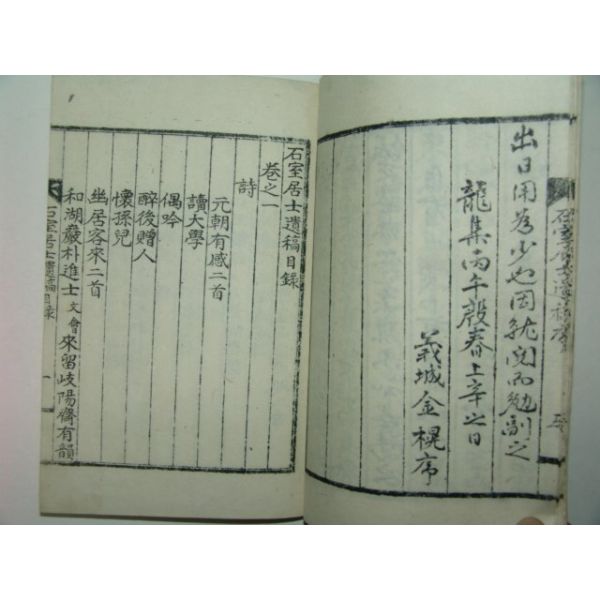 出日用為少也因就完而勉副之
龍集丙午殷春上辛之日
義城金榥序
石室居士遺稿序
石室居士遺稿目錄
卷之一
詩
元朝有感二首
讀大學
偶吟
醉後贈人
懷孫兒
幽居客來二首
和湖巖朴進士文會來留岐陽齋有韻
石室居士遺稿目錄
一